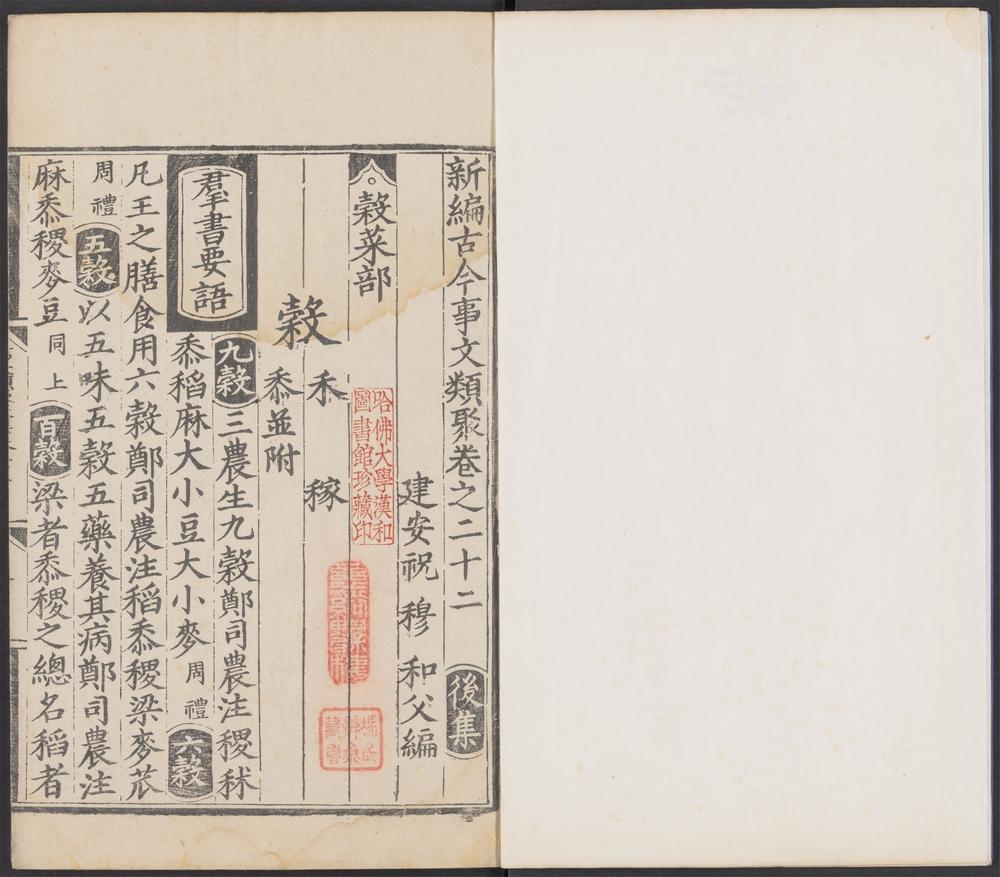 新編古今事文類聚卷之二十二 後集
建安祝 穆 和父編
穀菜部
穀 禾 稼
黍並附
羣書要語
九穀 三農生九穀鄭司農注稷秫
黍稻麻大小豆大小麥 周禮 六穀
凡王之膳食用六穀鄭司農注稻黍稷梁麥苽
周禮 五穀 以五味五穀五藥養其病鄭司農注
麻黍稷麥豆 同上 百穀 梁者黍稷之總名稻者
哈佛大學漢和
圖書館珍藏印